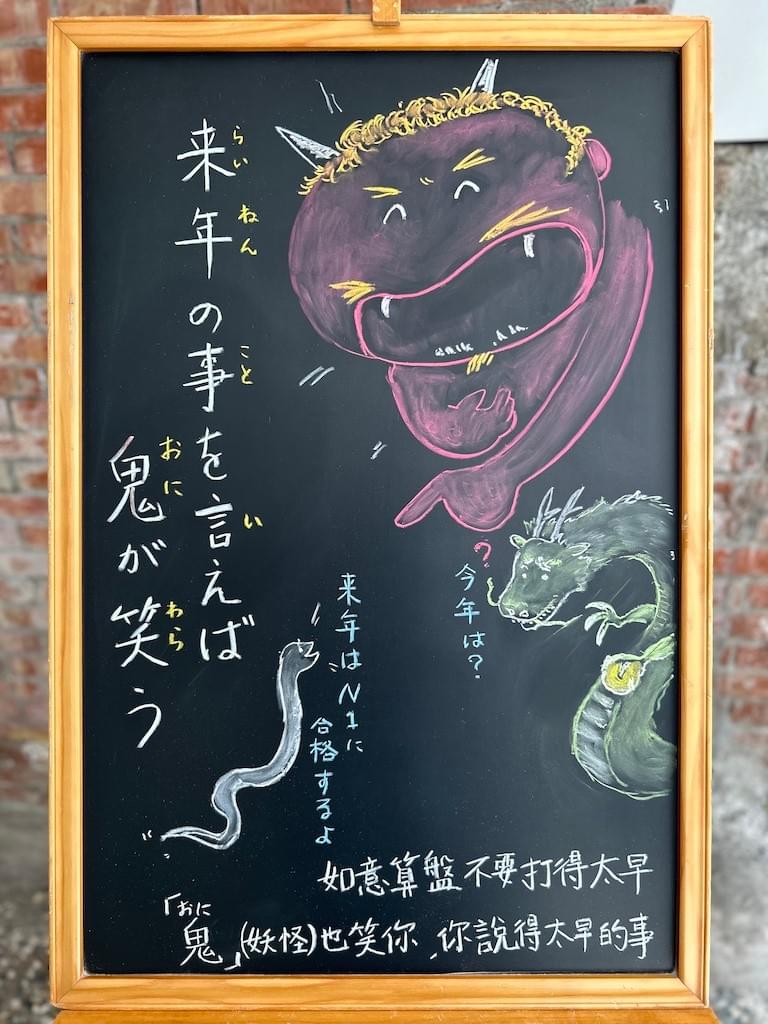 来年の事を言えば
らいねん こと い
鬼が笑う
おに わら
?
今年は?
来年はN1に
合格するよ
如意算盤不要打得太早
「おに
鬼」(妖怪)也笑你,你說得太早的事